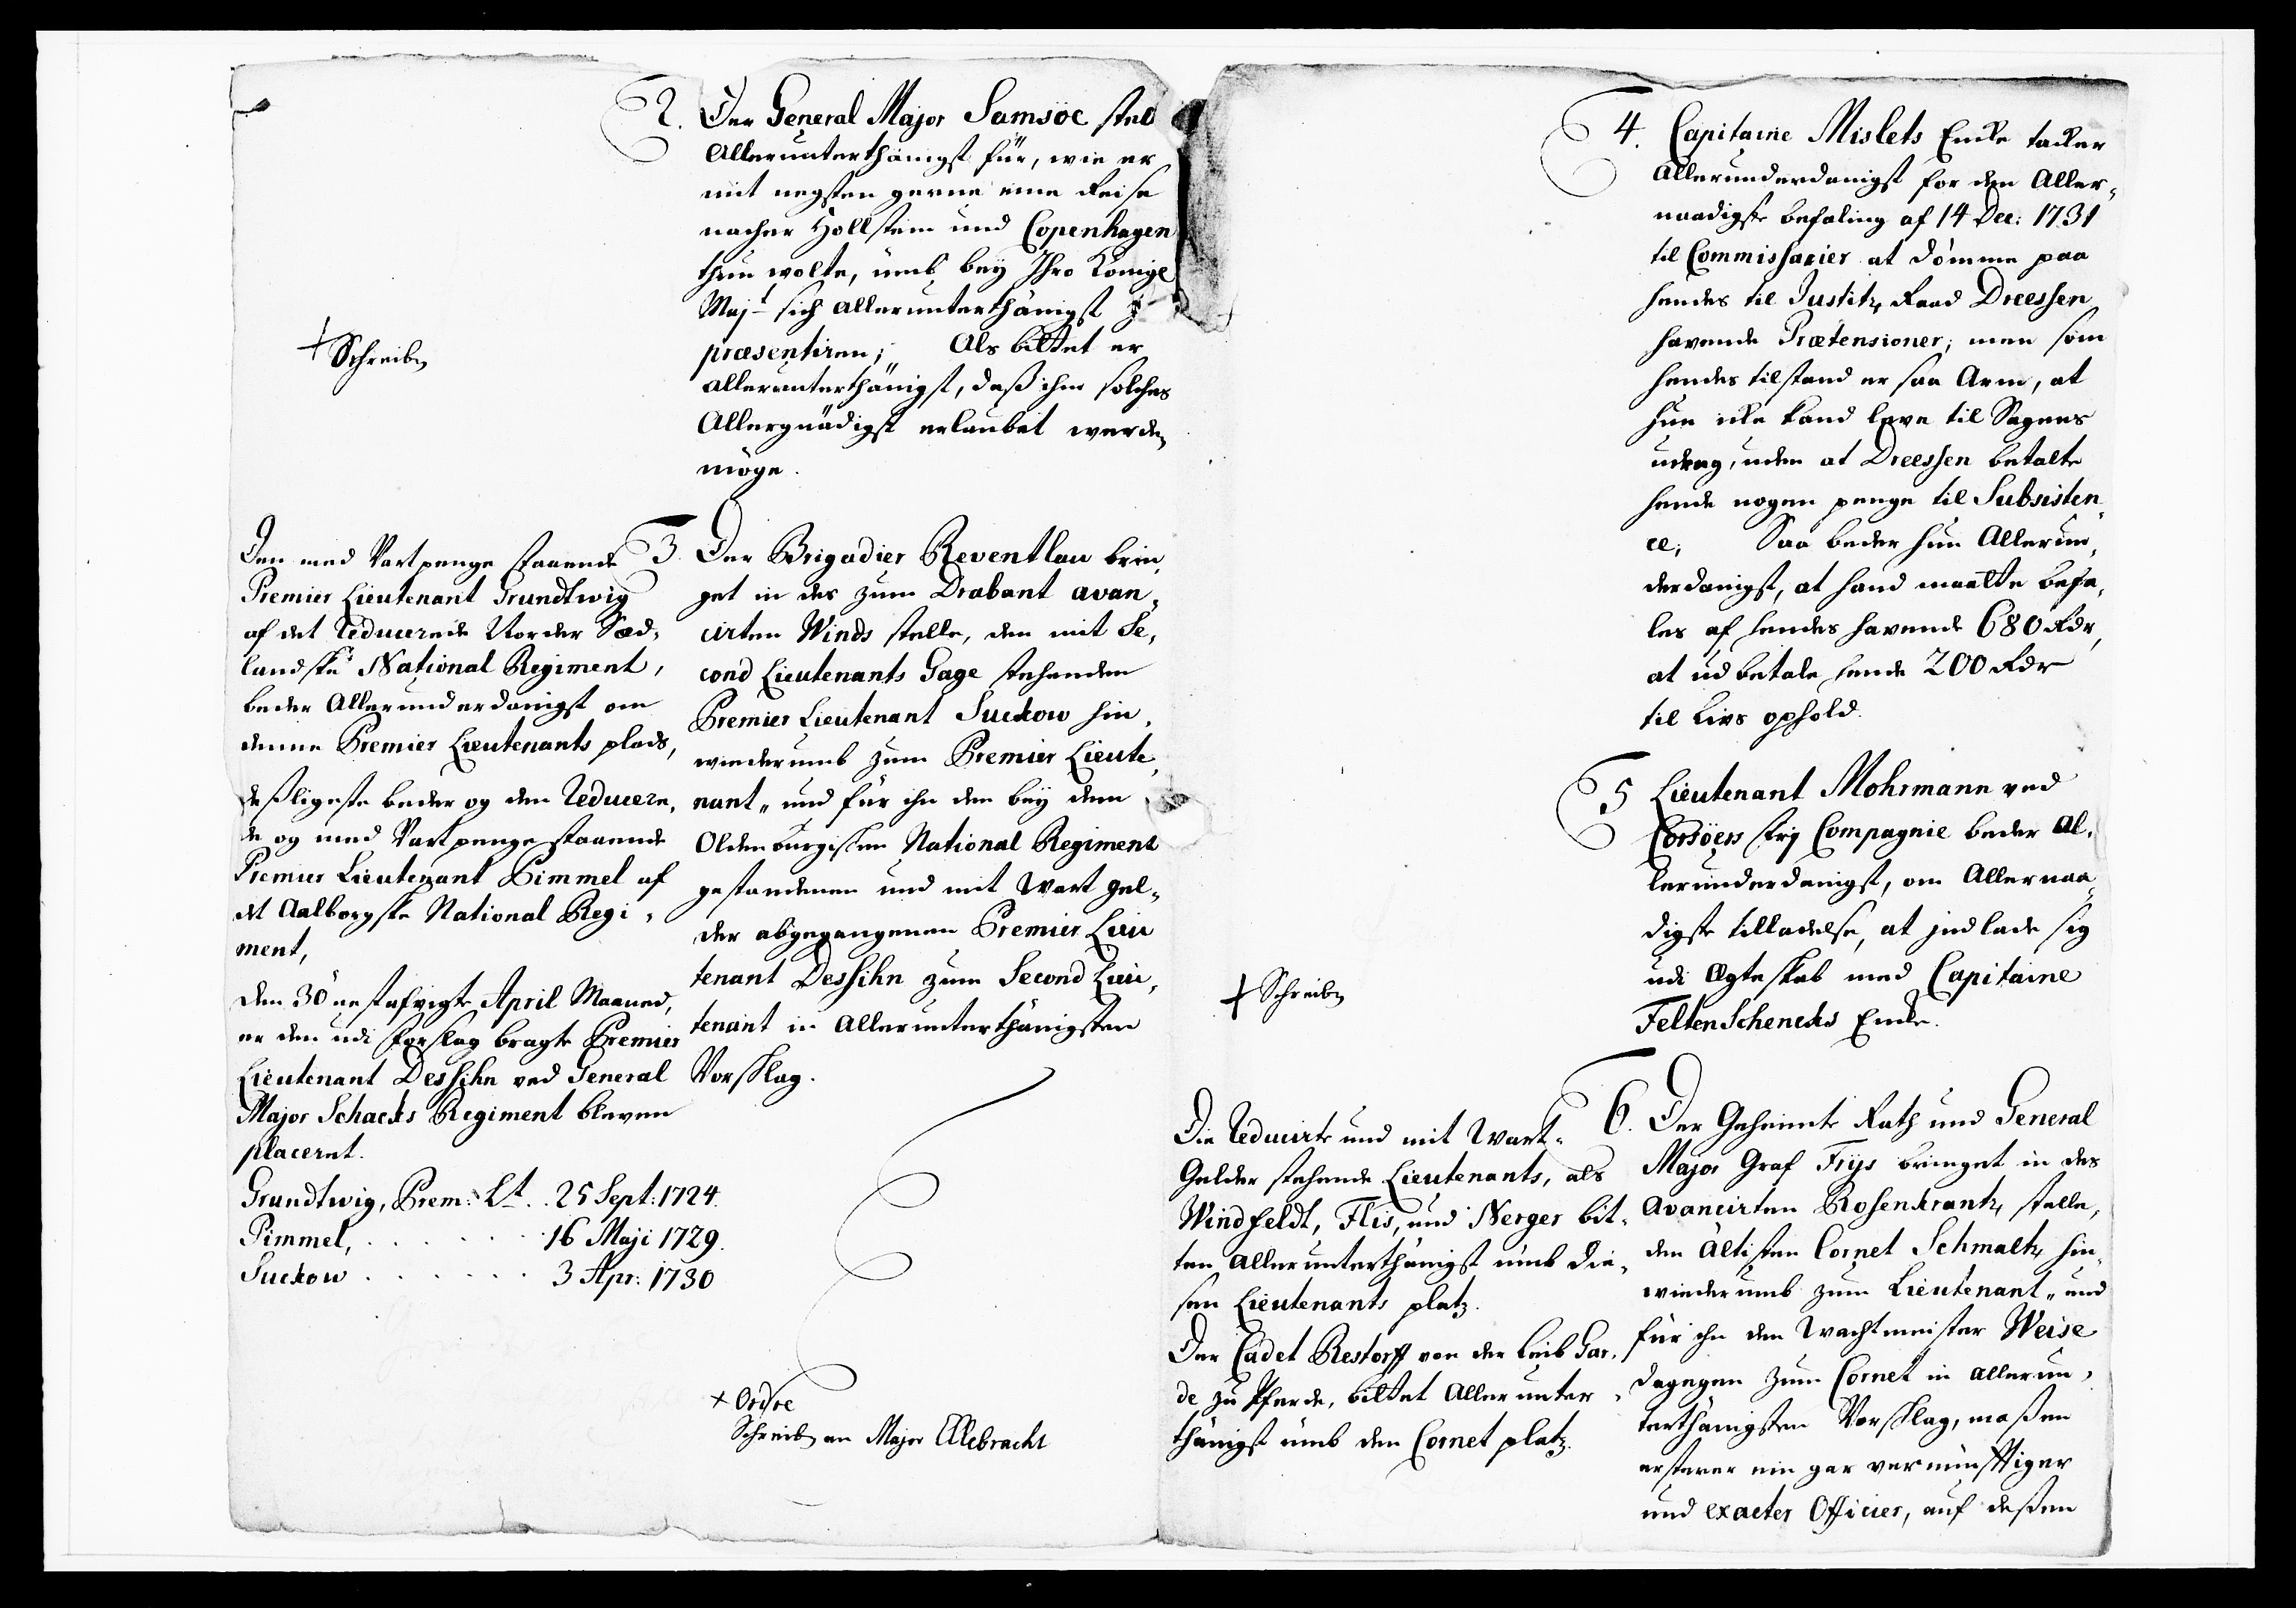 2. Der General Major Samsöe stel
Allerunterthänigst für, wie er
mit negsten gerne eine Reise
nacher Hollstein und Copenhagen
thun wolte, umb bey Ihro Königl
Majt sich allerunterthänigst
præsentiren; Als bittet er
allerunterthänigst, daß ihm solches
Allergnädigst erlaubet werden
möge.
+ Schreiben
3. Der Brigadier Reventlau brin,
get in des zum Drabant avan,
cirten Winds stelle, den mit Se,
cond Lieutenants Gage stehenden
Premier Lieutenant Suckow hin,
wiederumb zum Premier Lieute,
nant, und für ihn den bey dem
Oldenburgischen National Regiment
gestandenen und mit Wart gel,
der abgegangenen Premier Lieu
tenant Dessihn zum Second Lieu,
tenant in Allerunterthänigsten
Vorschlag.
Den med Vartpenge staaende
Premier Lieutenant Grundtwig
af det Reducerede Norder Siæd,
landske National Regiment,
beder Allerunderdanigst om
denne Premier Lieutenants plads,
deßligeste beder og den Reducere,
de og med Vartpenge staaende
Premier Lieutenant Pimmel af
det Aalborgske National Regi,
ment,
Den 30 nestafvigte April Maaned,
er den udi forslag bragte Premier
Lieutenant Dessihn ved General
Major Schacks Regiment bleven
placeret.
Grundtwig, Prem: Lt. . 25 Sept: 1724.
Pimmel, . . . . . . 16 Maji 1729.
Suckow . . . . . . 3 Apr: 1730
+ Ordre
Schreiben an Major Ellebracht
4. Capitaine Mislets Encke tacker
Allerunderdanigst for den Aller,
naadigste befaling af 14 Dec: 1731
til Commissarier at dömme paa
hendes til Justitz Raad Dreessen
havende Prætensioner; men som
hendes tilstand er saa Arm, at
hun icke kand leve til Sagens
udrag, uden at Dreessen betalte
hende nogen penge til Subsisten,
ce; Saa beder hun Allerun,
derdanigst, at hand maatte befa,
les af hendes havende 680 Rdr,
at udbetale hende 200 Rdr
til Livs ophold.
5 Lieutenant Mohrmann ved
Corsöers frj Compagnie beder Al,
lerunderdanigst, om Allernaa,
digste tilladelse, at indlade sig
udi Ægteskab med Capitaine
Felten Schencks Encke.
+ Schreiben
6. Der Geheimte Rath und General
Major Graf Frijs bringet in des
Avancirten Rosenkrantz stelle,
den Ältisten Cornet Schmaltz hin,
wiederumb zum Lieutenant, und
für ihn den Wachtmeister Weise
dagegen zum Cornet in allerun,
terthänigsten Vorschlag, maßen
ersterer ein gar vernünfftiger
und exacter Officier, auf deßen
Die Reducirte und mit Wart,
Gelder stehende Lieutenants, als
Windfeldt, Flis, und Nerger bit,
ten Allerunterthänigst umb die,
sen Lieutenants platz.
Der Cadet Restorff von der Leib Gar,
de zu Pferde, bittet Allerunter,
thänigst umb den Cornet platz.